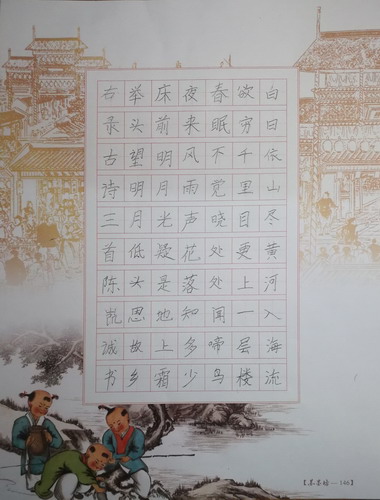 白日依山尽黄河入海流
欲穷千里目更上一层楼
春眠不觉晓处处闻啼鸟
夜来风雨声花落知多少
床前明月光疑是地上霜
举头望明月低头思故乡
右录古诗三首陈诚书
146